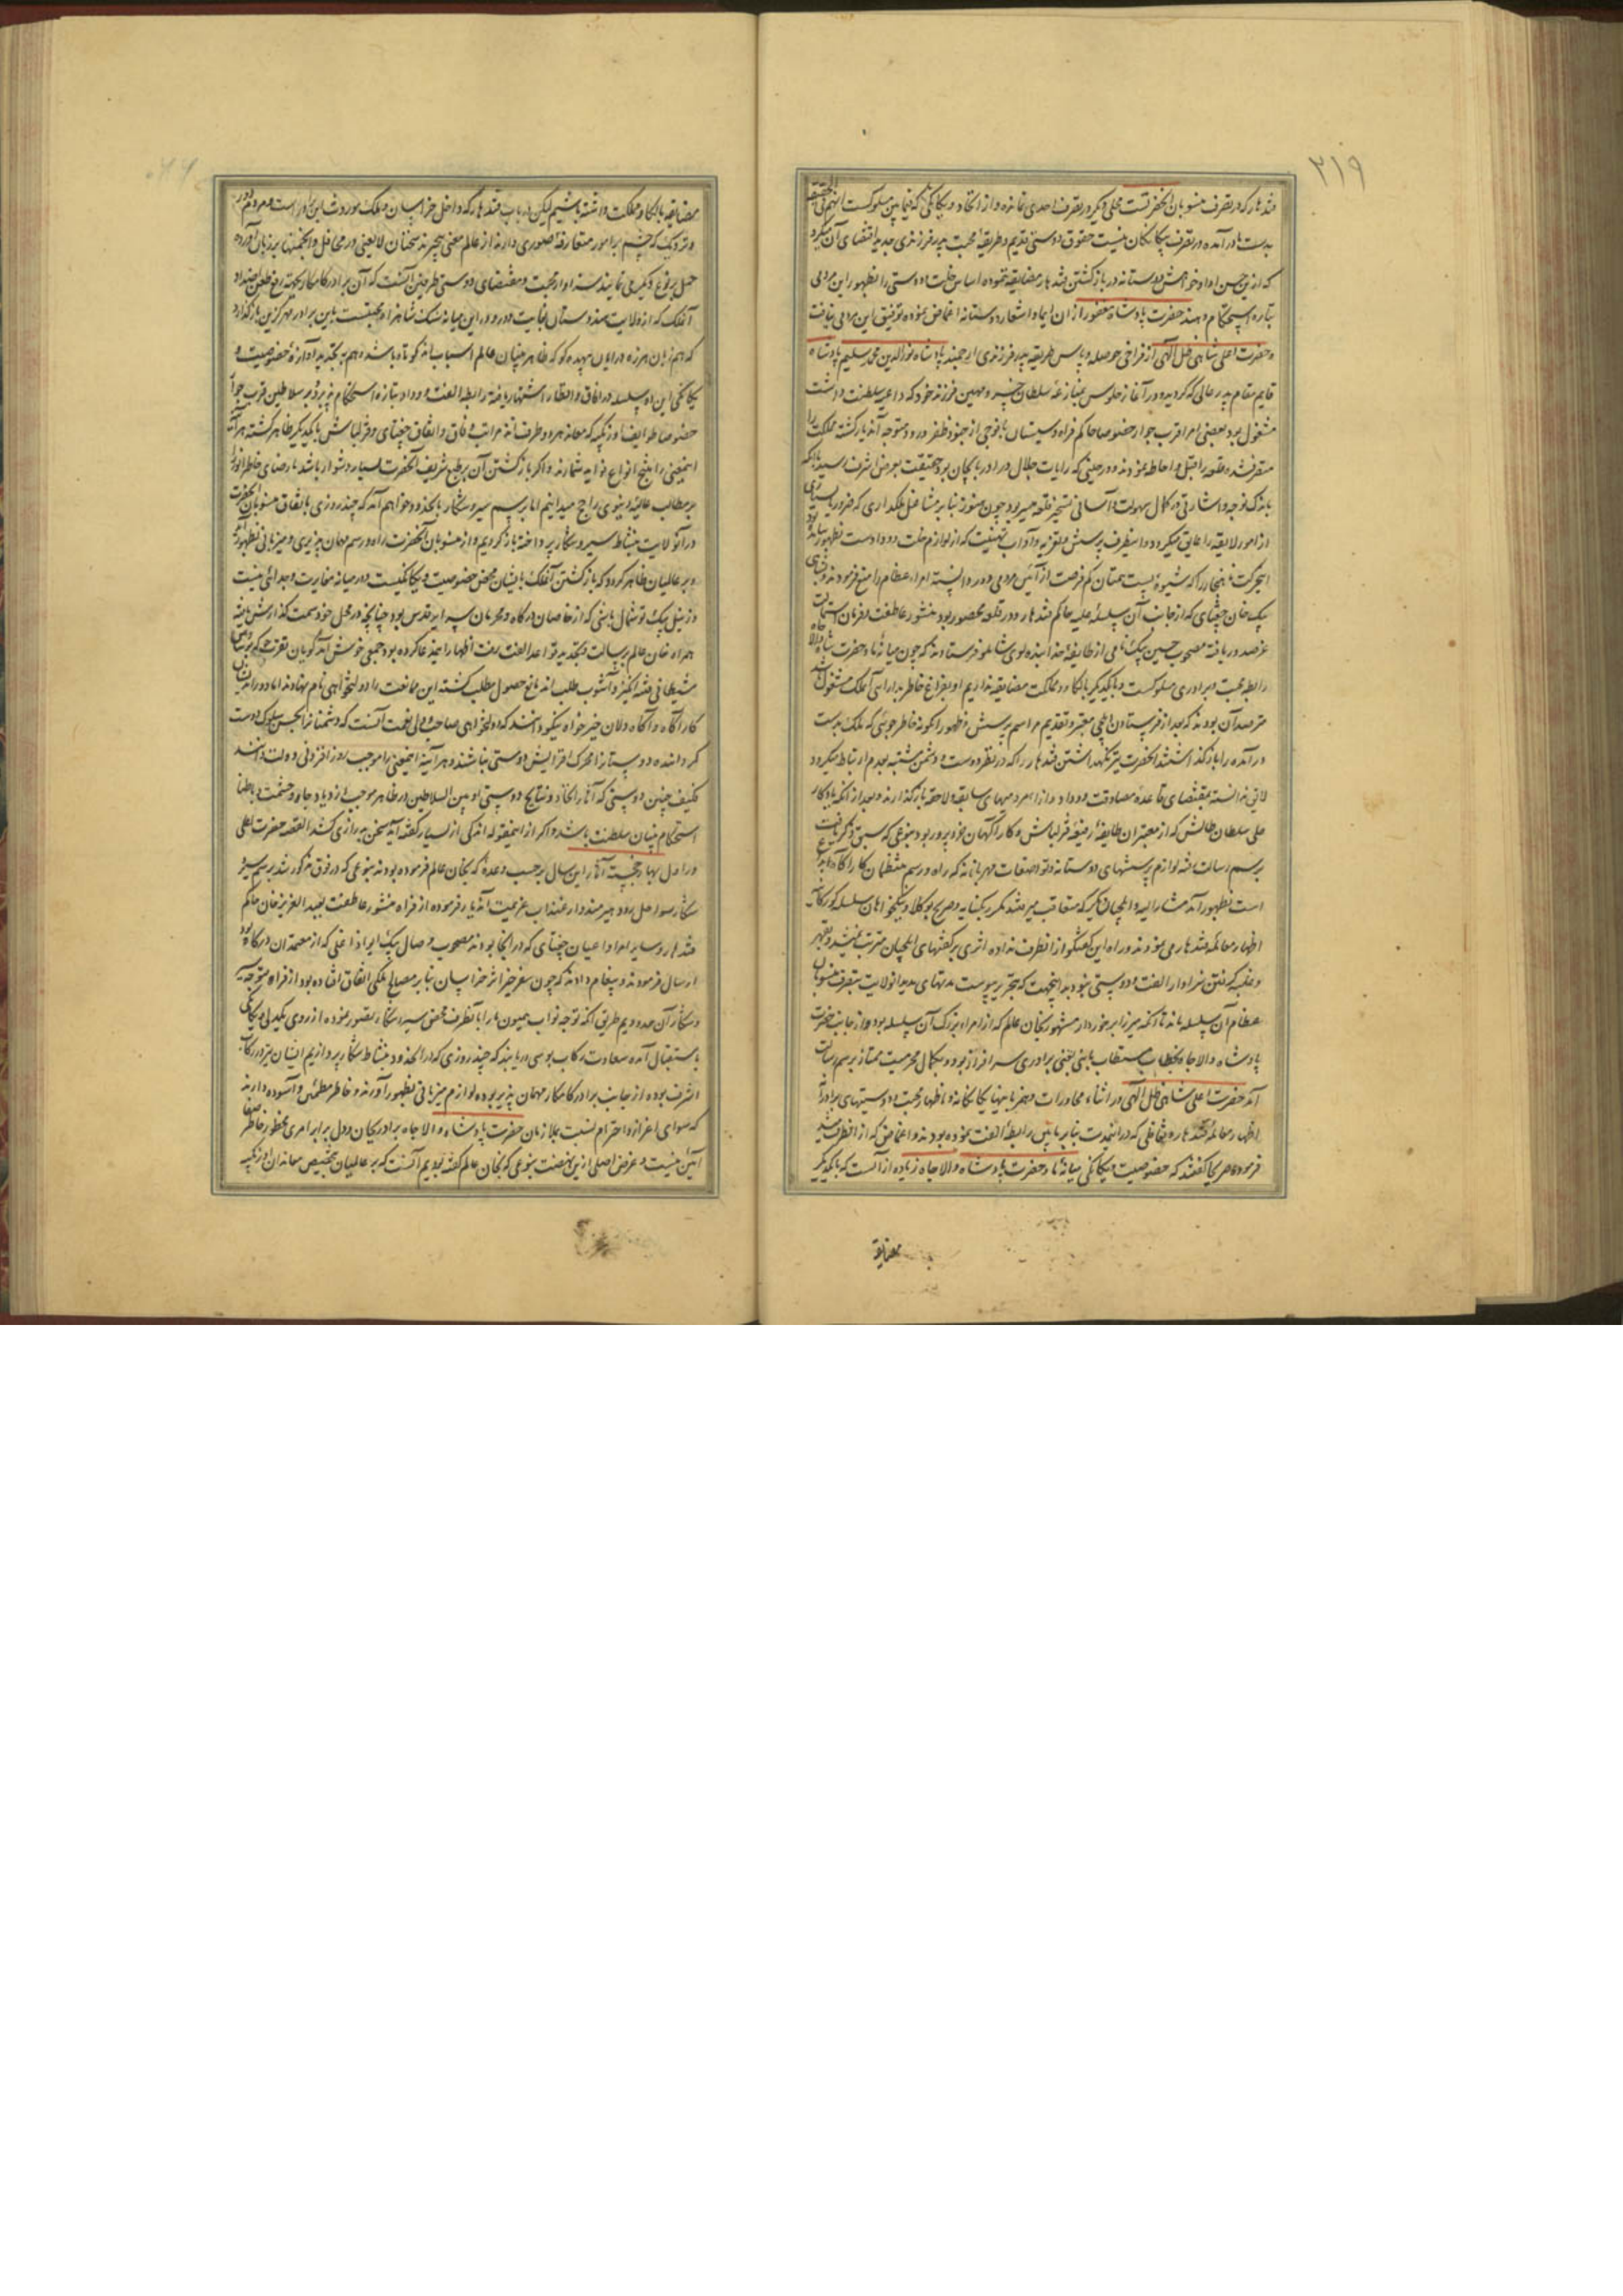 ۳۱۹
قندهار که در تصرف منسوبان آنحضرتست محلی دیگر در تصرف احدی نمانده و از اتحاد و یگانگی که فیمابین مسلوکست
بدست ما در آمده در تصرف بیگانگان نیست حقوق دوستی قدیم و طریقه محبت پدر فرزندی جدید اقتضای آن میکرد
که ازین حسن ادا و خواهش دوستانه در باز گشتن قندهار مضایقه ننموده اساس خلت و دوستی را بظهور این مردمی
بتازه استحکام دهند حضرت پادشاه مغفور از ان ایما و اشعار دوستانه اغماض نموده توفیق این مردمی نیافت
و حضرت اعلی شاهی ظل آلهی از فراخی حوصله و پاس طریقه پدر فرزندی ارجمند پادشاه نورالدین محمد سلیم پادشاه
قایم مقام پدر عالی گهر گردیده در آغاز جلوس بمنازعه سلطان خسرو مهین فرزند خود که داعیه سلطنت داشت
مشغول بود بعضی امراء قرب جوار خصوصا حاکم فراه و سیستان با فوجی از جنود ظفر ورود متوجه آندیار گشته مملکت را
متصرف شده قلعه را قبل و احاطه نمودند و در حینی که رایات جلال در آذربایجان بود حقیقت بعرض اشرف رسید با آنکه
باندک توجه و اشارتی در کمال سهولت و آسانی تسخیر قلعه میسر بود چون هنوز بنابر مشاغل ملکداری که ضروریات
از امور لایقه را عایق میگردد از ینطرف پرسش و تعزیه و آداب تهنیت که از لوازم خلت و وداد است بظهور نیامده
اینحرکت ناهنجار را که شیوه پست همتان کم فرصت از آئین مردمی دور دانسته امراء عظام را منع فرمودند و
بیک خان چغتای که از جانب آن سلسله علیه حاکم قندهار و در قلعه محصور بود منشور عاطفت و فرمان استمالت
عز صدور یافته مصحوب حسین بیک نامی از طایفه خدابنده لوی شاملو فرستادند که چون میانه ما و حضرت
رابطه محبت و برادری مسلوکست و با یکدیگر بالکا و مملکت مضایقه نداریم او بفراغ خاطر بدارایی آنملک مشغول باشد
مترصد آن بودند که بعد از فرستادن ایلچی معتبر و تقدیم مراسم پرسش و ظهور اینگونه خاطر جوئی که ملک بدست
در آمده را باز گذاشتند آنحضرت نیز نگهداشتن قندهار را که در نظر دوست و دشمن مشتبه بعدم ارتباط میگردد
لایق ندانسته بمقتضای قاعده مصادقت و وداد و ازدیاد مهربانیهای سابقه و لاحقه باز گذارند و بعد از آنکه یادگار
علی سلطان طالش که از معتبران طایفه رفیعه قزلباش و کار آگهان خود پرور بود بنوعی که سبق ذکر یافت
برسم رسالت رفته لوازم پرسشهای دوستانه و تواضعات مهربانانه که راه و رسم منتظمان کار آگاه
است بظهور آمد مشار الیه و ایلچیان دیگر که متعاقب میرفتند مکرر بکنایه و صریح بوکلا و نیکخواهان سلسله گورکانیه
اظهار معامله قندهار می نمودند و راه این گفتگو از انطرف نداده اثری بر گفتهای ایلچیان مترتب نمیشد و
و غلبه گرفتن سزاوار الفت و دوستی نبود بدانجهت که بتحریر پیوست مدتهای مدید آنولایت بتصرف منسوبان
عظام آن سلسله ماند تا آنکه میرزا برخوردار مشهور بخان عالم که از امراء بزرگ آن سلسله بود و از جانب حضرت
پادشاه والاجاه بخطاب مستطاب یعنی برادری سرافراز بود و بکمال محرمیت ممتاز برسم رسالت
آمد حضرت اعلی شاهی ظل آلهی در اثناء محاورات و مهربانیهای یگانگانه و اظهار محبت و دوستیهای برادرانه
اظهار معامله قندهار و تغافلی که در اینمدت بنابر تأسیس رابطه الفت نموده بودند و اغماض که از انطرف
فرمود صریحا گفتند که خصوصیت و یگانگی میانه ما و حضرت پادشاه والاجاه زیاده از آنست که با یکدیگر
مضایقه
مضایقه بالکا و مملکت داشته باشیم لیکن در باب قندهار که داخل خراسان و ملک موروث این است مردم دور
و نزدیک که چشم بر امور متعارفه صوری دارند از عالم معنی بیخبرند سخنان لایعنی در محافل و انجمنها بر زبان آورده
حمل بر نوع دیگر می نمایند سزاوار محبت و مقتضای دوستی طرفین آنست که آن برادر کامکار بجهة رفع طعن
آنملک که از ولایت هندوستان بغایت دور و در این میانه سنگ شاهراه محبتست باین برادر مهر گزین باز گذارد
که هم زبان هرزه درایان بیهده گو که ظاهر بینان عالم اسبابند کوتاه باشد و هم بتجدید آوازه خصوصیت و
یگانگی این دو سلسله در آفاق و اقطار اشتهار یافته رابطه الفت و وداد بتازه استحکام پذیرد و بر سلاطین قرب جوار
خصوصا طوایف اوزبکیه که معاند هر دو طرف اند مراتب وفاق و اتفاق چغتای و قزلباش با یکدیگر ظاهر گشته
اینمعنی را منتج انواع فواید شمارند و اگر باز گشتن آن بر طبع شریف آنحضرت بسیار دشوار باشد ما رضای خاطر انور
بر مطالب عالیه دنیوی راجح میدانیم اما برسم سیر و شکار بانحدود خواهم آمد که چند روزی باتفاق منسوبان آنحضرت
در آنولایت بنشاط سیر و شکار پرداخته باز گردیم و از منسوبان آنحضرت راه و رسم مهمان پذیری و میزبانی بظهور آمده
و بر عالمیان ظاهر گردد که باز گشتن آنملک بایشان محض خصوصیت و یگانگیست و در میانه مغایرت و جدائی نیست
و زینل بیک توشمال باشی که از خاصان درگاه و محرمان سرای قدس بود چنانچه در محل خود سمت گذارش یافته
همراه خان عالم برسالت و تجدید قواعد الفت رفت اظهار اینمدعا کرده بود جمعی خوش آمد گویان
شیطانی فتنه انگیز و آشوب طلب اند مانع حصول مطلب گشته این ممانعت را دولتخواهی نام نهادند اما دوراندیشان
کار آگاه و آگاه دلان خیر خواه نیکو دانند که دولتخواهی صاحب و ولی نعمت آنست که دشمنانرا بحسن سلوک دوست
گردانند نه دوستانرا محرک افزایش دوستی نباشند و هر آینه اینمعنی را موجب روز افزونی دولت دانند
فکیف چنین دوستی که آثار اتحاد و نتایج دوستی او بین السلاطین در ظاهر موجب ازدیاد جاه و حشمت و باطنا
استحکام بنیان سلطنت باشد و اگر از اینمقوله اندکی از بسیار گفته آید سخن بدرازی کشد القصه حضرت اعلی
در اول بهار خجسته آثار این سال بر حسب وعده که بخان عالم فرموده بودند بنوعی که در فوق مذکور شد برسم سیر و
شکار سواحل رود هیرمند وارغنداب عزیمت آندیار فرموده از فراه منشور عاطفت بعبد العزیز خان حاکم
قندهار و سایر امرا و اعیان چغتای که در انجا بودند مصحوب وصال بیک ایراداغلی که از معتمدان درگاه بود
ارسال فرمودند و پیغام دادند که چون سفر خیر اثر خراسان بنابر مصالح ملکی اتفاق افتاده بود از فراه متوجه سیر
و شکار آن حدودیم طریق آنکه توجه نواب همیون ما را بانطرف محض سیر و شکار تصور نموده از روی یکدلی و یگانگی
باستقبال آمده سعادت رکاب بوسی دریابند که چند روزی که در انحدود بنشاط شکار پردازیم ایشان نیز در رکاب
اشرف بوده از جانب برادر کامکار مهمان پذیر بوده لوازم میزبانی بظهور آورند و خاطر مطمئن و آسوده دارند
که سوای اعزاز و احترام نسبت بملازمان حضرت پادشاه والاجاه برادر بجان و دل برابر امری مخطور خاطر
آئین نیست و غرض اصلی از این نهضت بنوعی که بخان عالم گفته بودیم آنست که بر عالمیان بتخصیص معاندان اوزبکیه